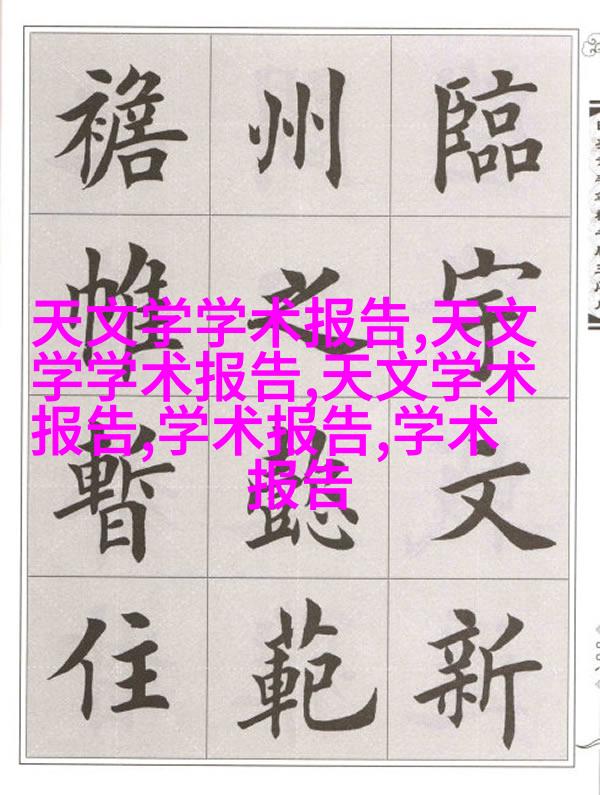 臨宇文新
州之懿範
襜帷暫住
天文学学术报告,天文
学学术报告,天文学术
报告,学术报告,学术
报告